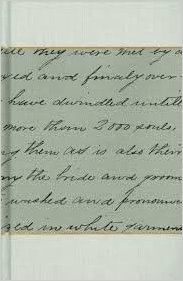 they were met by a
and finaly over-
have dwindled untill
more than 2000 souls.
them as is also their
the bride and groom
washed and pronounce
in white garmen